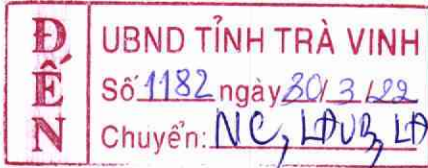 ĐẾN
UBND TỈNH TRÀ VINH
Số 1182 ngày 30/3/22
Chuyển: NC, LĐVB, LĐ